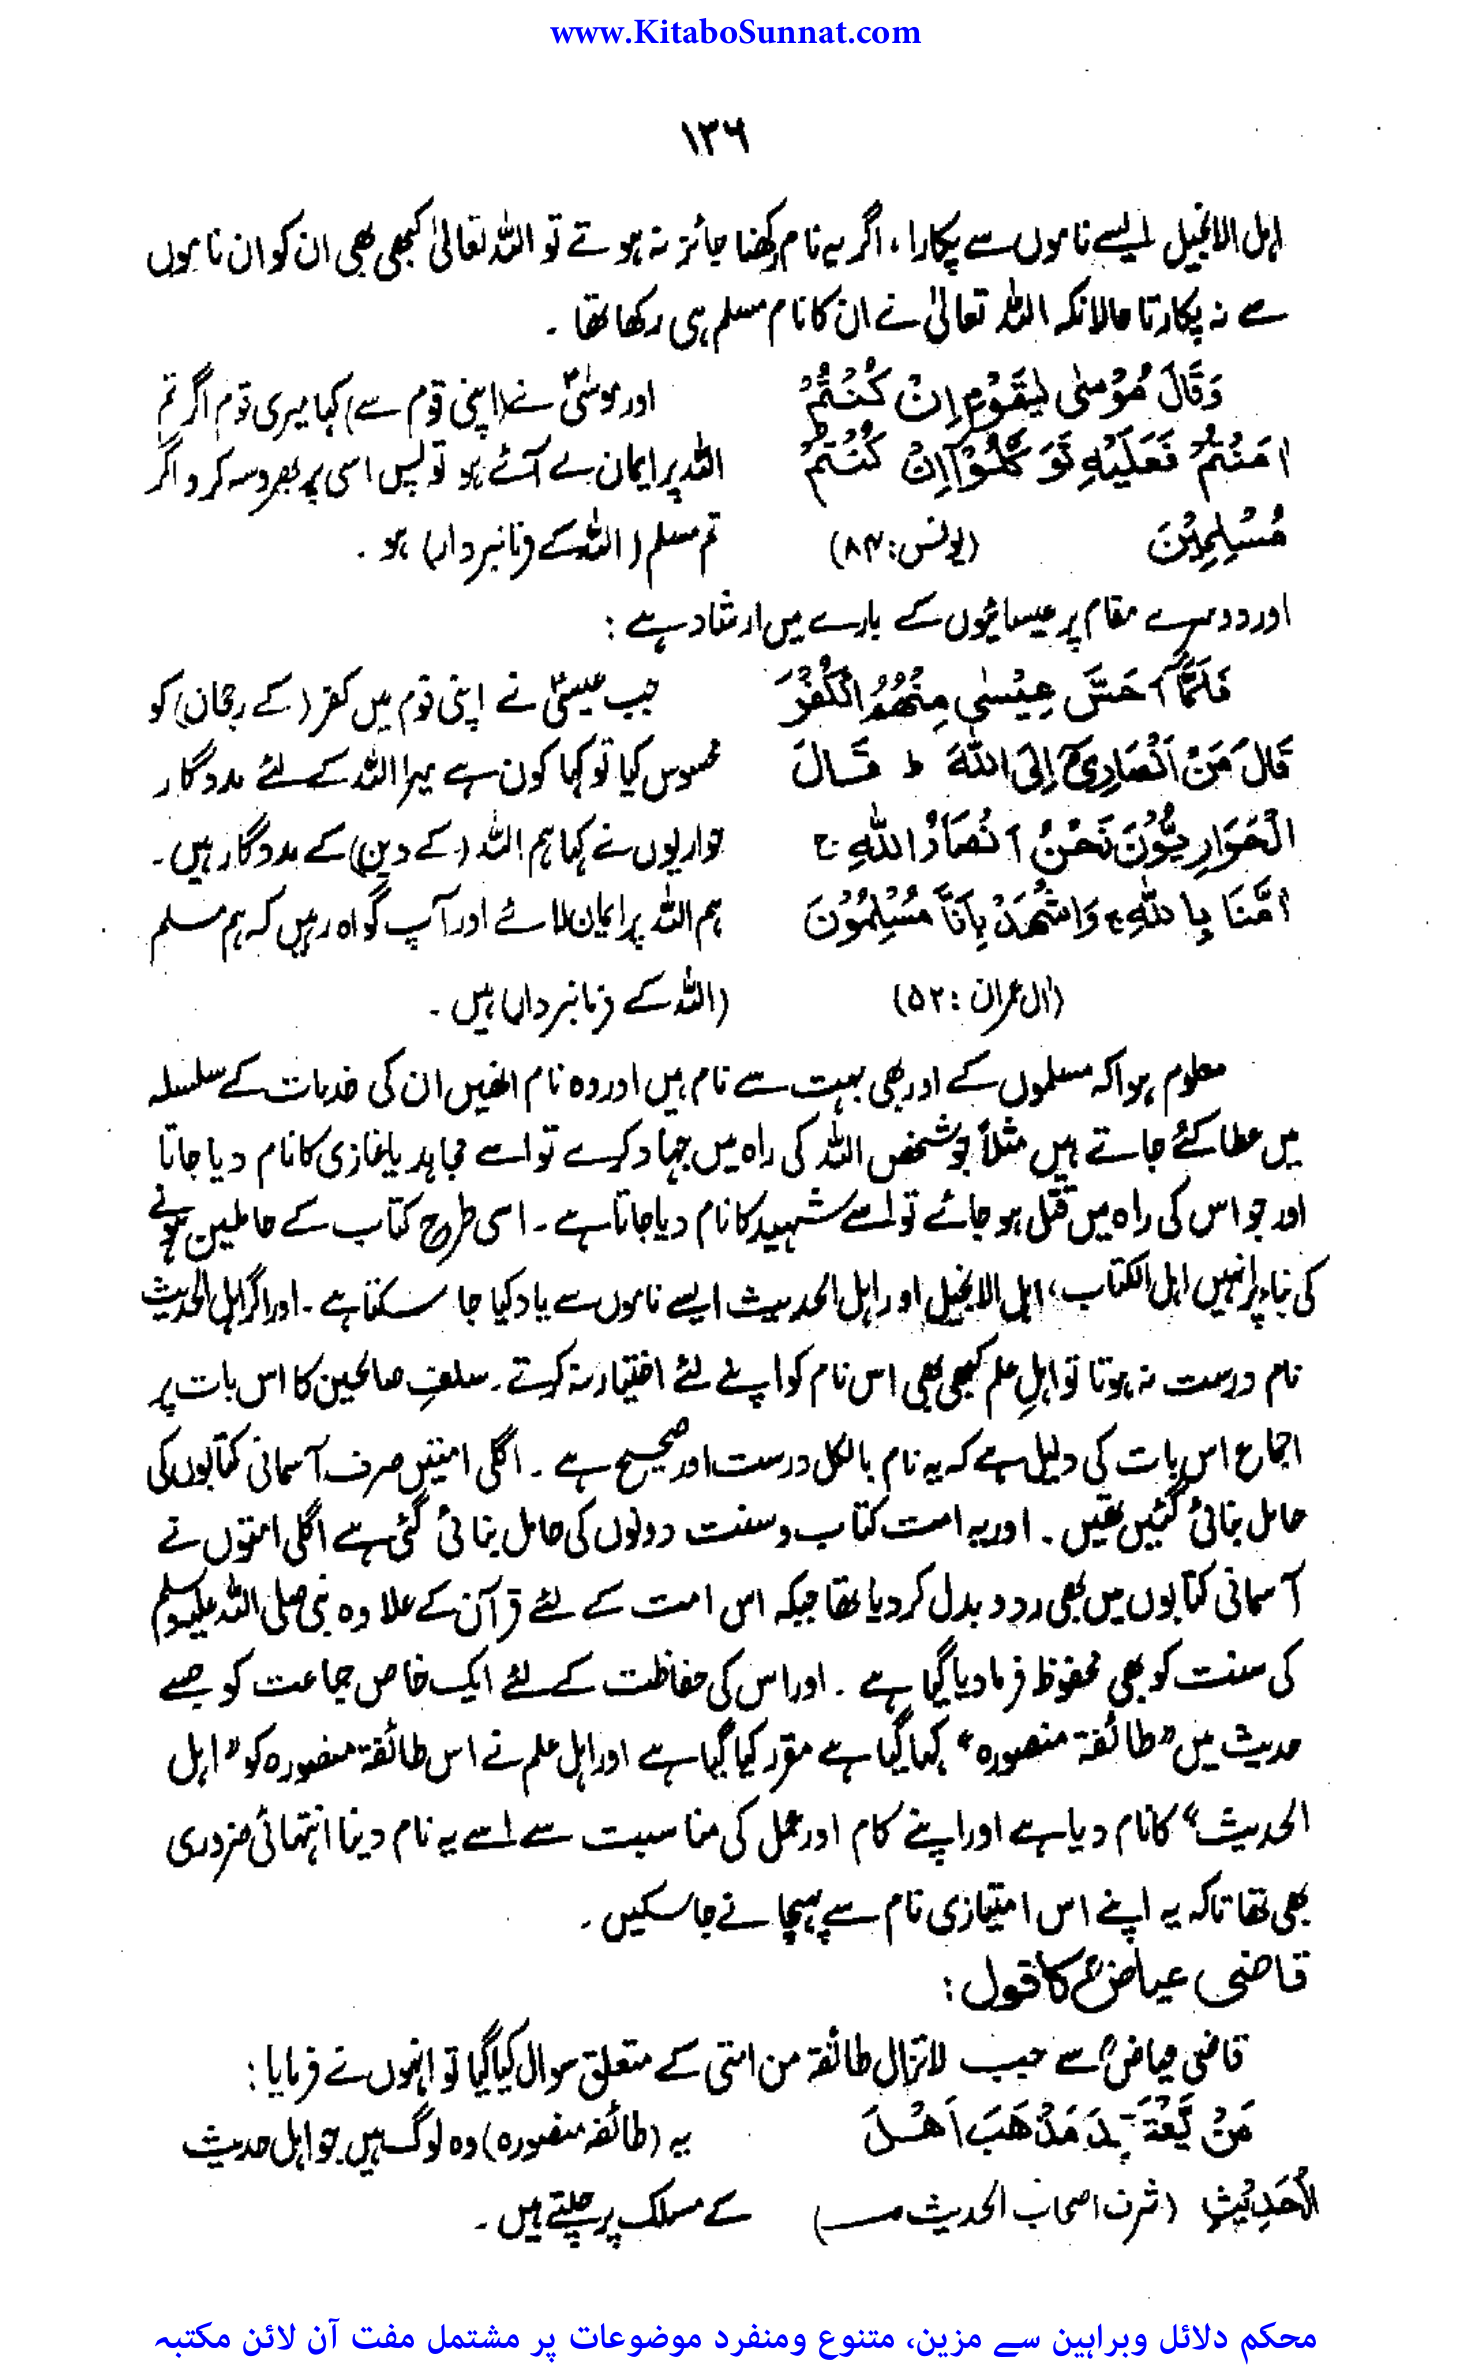 www.KitaboSunnat.com
۱۳۶
اہل الانجیل ایسے ناموں سے پکارا، اگر یہ نام رکھنا جائز نہ ہوتے تو اللہ تعالیٰ کبھی بھی ان کو ان ناموں
سے نہ پکارتا حالانکہ اللہ تعالیٰ نے ان کا نام مسلم ہی رکھا تھا ۔
وَقَالَ مُوْسٰى لِيٰقَوْمِ اِنْ كُنْتُمْ اور موسیٰؑ نے (اپنی قوم سے) کہا میری قوم اگر تم
اٰمَنْتُمْ فَعَلَيْهِ تَوَكَّلُوْآ اِنْ كُنْتُمْ اللہ پر ایمان لے آئے ہو تو پس اسی پر بھروسہ کرو اگر
مُسْلِمِيْنَ (یونس: ۸۴) تم مسلم (اللہ کے فرمانبردار) ہو ۔
اور دوسرے مقام پر عیسائیوں کے بارے میں ارشاد ہے :
فَلَمَّآ اَحَسَّ عِيْسٰى مِنْهُمُ الْكُفْرَ جب عیسیٰؑ نے اپنی قوم میں کفر (کے رجحان) کو
قَالَ مَنْ اَنْصَارِىْٓ اِلَى اللهَ ط قَالَ محسوس کیا تو کہا کون ہے میرا اللہ کے لئے مددگار
الْحَوَارِيُّوْنَ نَحْنُ اَنْصَارُ اللهِ ج حواریوں نے کہا ہم اللہ (کے دین) کے مددگار ہیں۔
اٰمَنَّا بِاللهِ ج وَاشْهَدْ بِاَنَّا مُسْلِمُوْنَ ہم اللہ پر ایمان لائے اور آپ گواہ رہیں کہ ہم مسلم
(اٰل عمران : ۵۲) (اللہ کے فرمانبردار) ہیں ۔
معلوم ہوا کہ مسلموں کے اور بھی بہت سے نام ہیں اور وہ نام انھیں ان کی خدمات کے سلسلہ
میں عطا کئے جاتے ہیں مثلاً جو شخص اللہ کی راہ میں جہاد کرے تو اسے مجاہد یا غازی کا نام دیا جاتا
اور جو اس کی راہ میں قتل ہو جائے تو اسے شہید کا نام دیا جاتا ہے ۔ اسی طرح کتاب کے حاملین ہونے
کی بناء پر انہیں اہل الکتاب، اہل الانجیل اور اہل الحدیث ایسے ناموں سے یاد کیا جا سکتا ہے ۔ اور اگر اہل الحدیث
نام درست نہ ہوتا تو اہلِ علم کبھی بھی اس نام کو اپنے لئے اختیار نہ کرتے ۔ سلفِ صالحین کا اس بات پر
اجماع اس بات کی دلیل ہے کہ یہ نام بالکل درست اور صحیح ہے ۔ اگلی امتیں صرف آسمانی کتابوں کی
حامل بنائی گئیں تھیں ۔ اور یہ امت کتاب و سنت دونوں کی حامل بنائی گئی ہے اگلی امتوں نے
آسمانی کتابوں میں بھی ردوبدل کر دیا تھا جبکہ اس امت کے لئے قرآن کے علاوہ نبی صلی اللہ علیہ وسلم
کی سنت کو بھی محفوظ فرما دیا گیا ہے ۔ اور اس کی حفاظت کے لئے ایک خاص جماعت کو جسے
حدیث میں "طائفۃ منصورہ" کہا گیا ہے مقرر کیا گیا ہے اور اہل علم نے اس طائفۃ منصورہ کو "اہل
الحدیث" کا نام دیا ہے اور اپنے کام اور عمل کی مناسبت سے اسے یہ نام دینا انتہائی ضروری
بھی تھا تاکہ یہ اپنے اس امتیازی نام سے پہچانے جا سکیں ۔
قاضی عیاضؒ کا قول :
قاضی عیاضؒ سے جب لا تزال طائفۃ من امتی کے متعلق سوال کیا گیا تو انہوں نے فرمایا :
مَنْ يَّعْتَقِدَ مَذْهَبَ اَهْلَ یہ (طائفہ منصورہ) وہ لوگ ہیں جو اہل حدیث
الْحَدِيْثِ (شرف اصحاب الحدیث صـ) کے مسلک پر چلتے ہیں ۔
محکم دلائل وبراہین سے مزین، متنوع ومنفرد موضوعات پر مشتمل مفت آن لائن مکتبہ